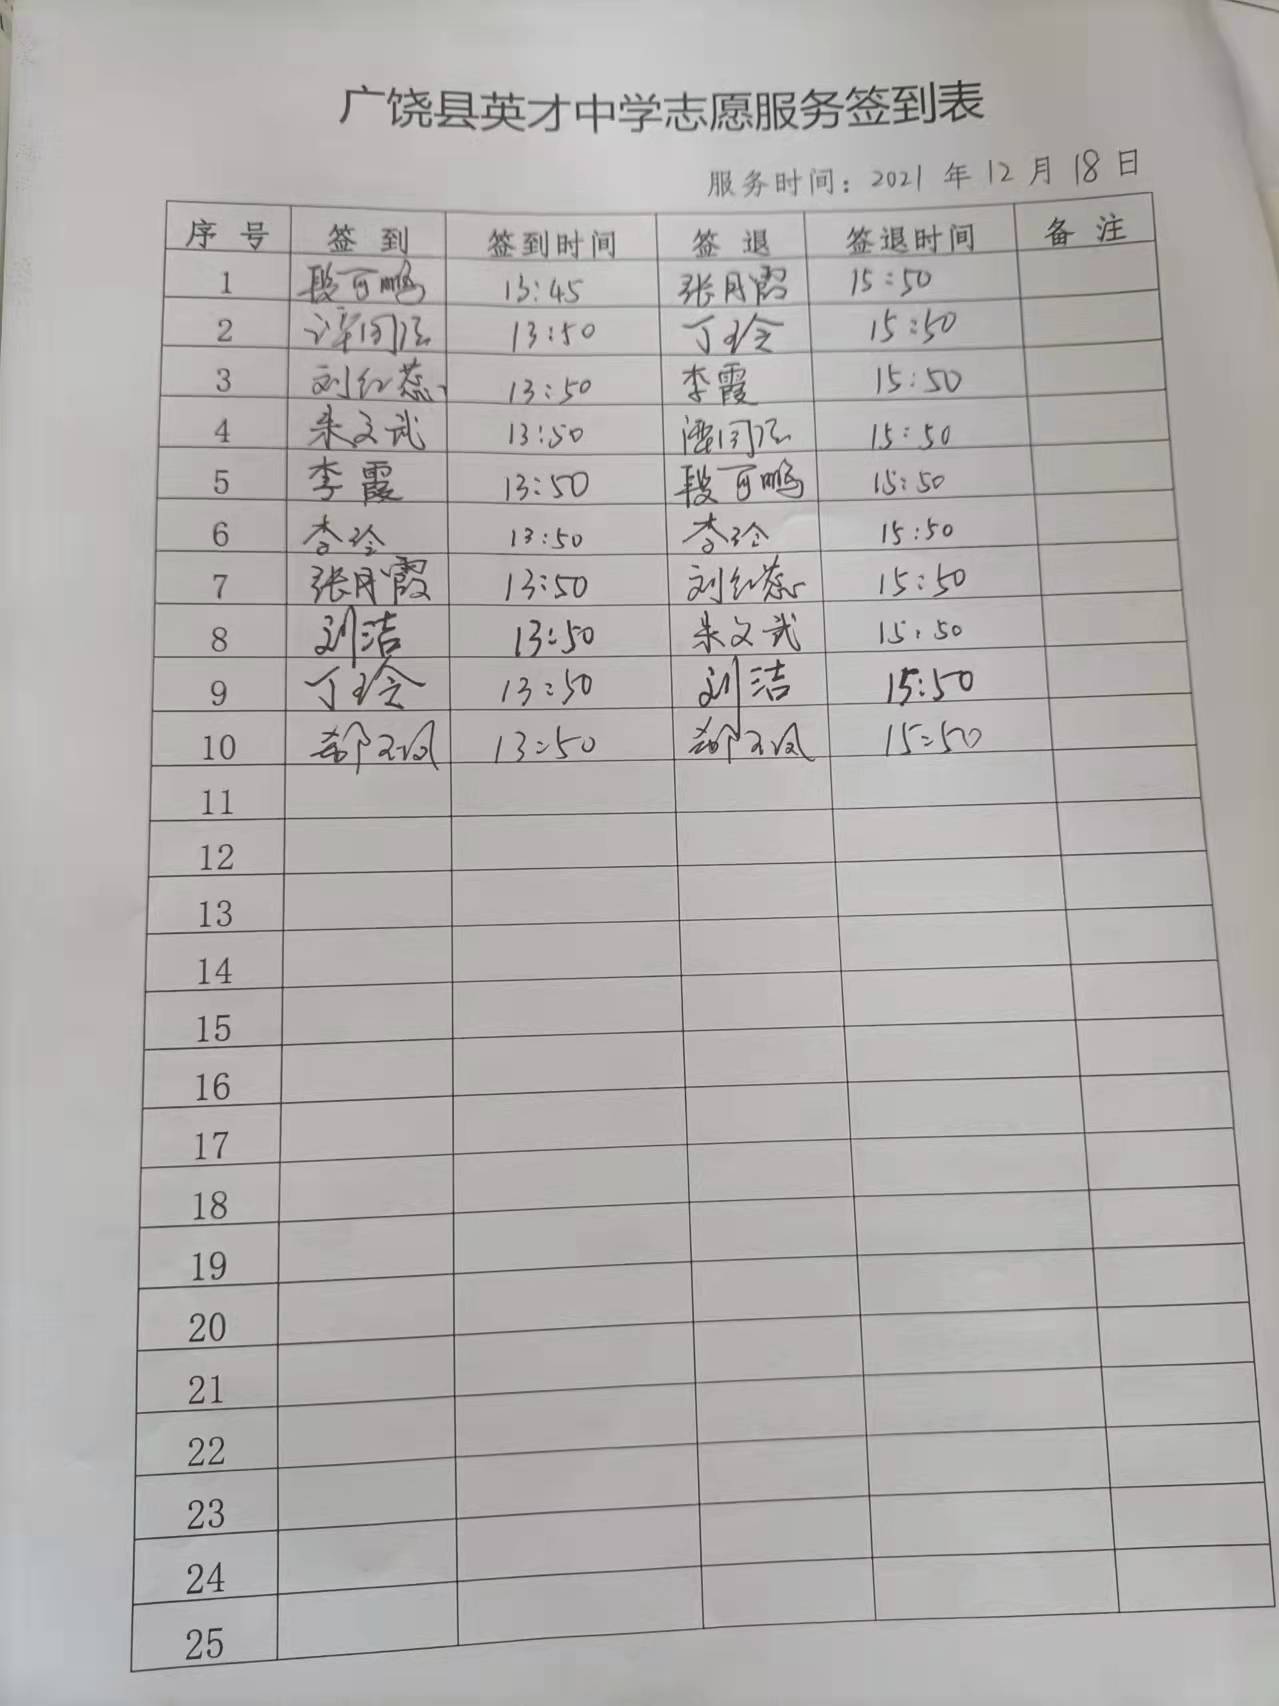 广饶县英才中学志愿服务签到表
服务时间：2021 年 12 月 18 日
序 号 签 到 签到时间 签 退 签退时间 备 注
1 段可鹏 13:45 张月霞 15:50
2 13:50 丁玲 15:50
3 刘红蕊 13:50 李霞 15:50
4 朱文武 13:50 15:50
5 李霞 13:50 段可鹏 15:50
6 李玲 13:50 李玲 15:50
7 张月霞 13:50 刘红蕊 15:50
8 刘洁 13:50 朱文武 15:50
9 丁玲 13:50 刘洁 15:50
10 13:50 15:50
11
12
13
14
15
16
17
18
19
20
21
22
23
24
25